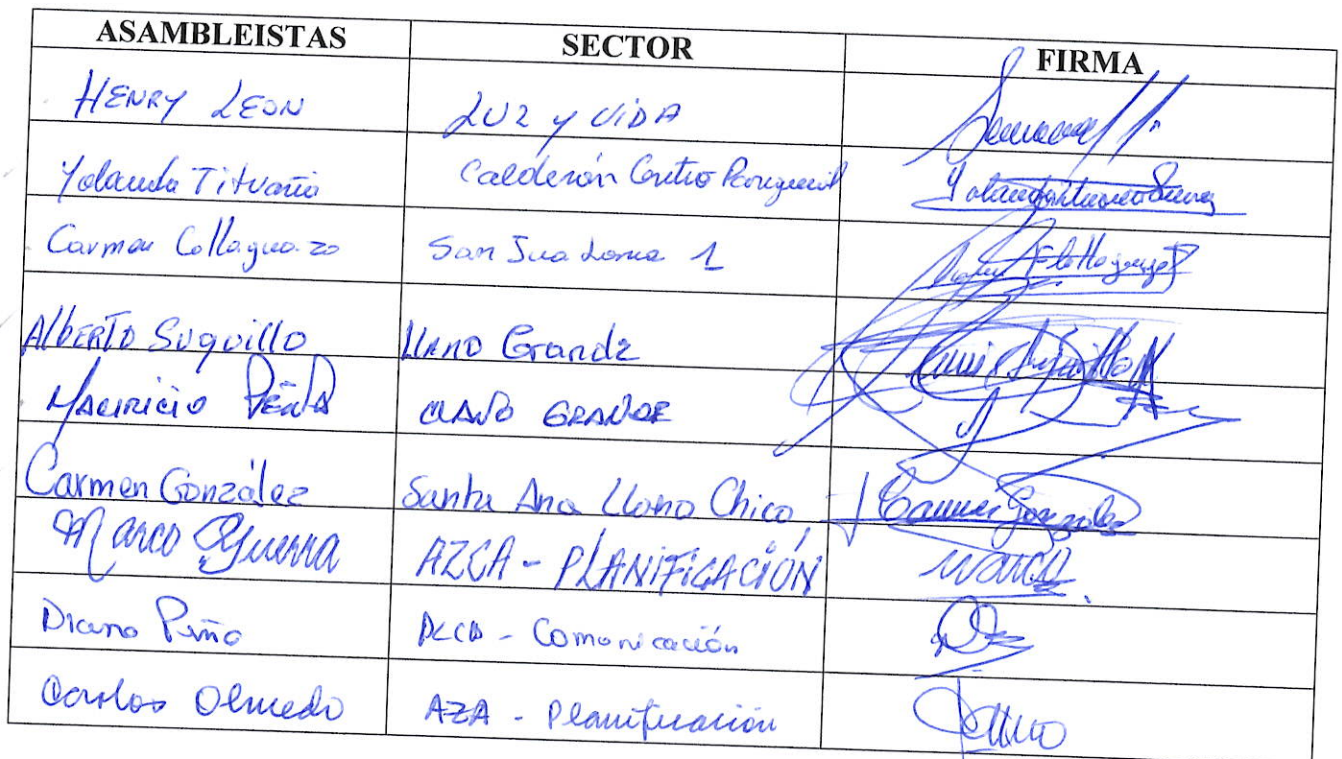 ASAMBLEISTAS SECTOR FIRMA
HENRY LEON LUZ y ViDA
Yolanda Tituaña Calderón Centro Parroquial
Carmen Collaguazo San Jua Loma 1
Alberto Suquillo LLANO Grande
MAURICIO PEÑA LLANO GRANDE
Carmen González Santa Ana Llano Chico Carmen González
Marco Guerra AZCA - PLANIFICACIÓN MARCO
Diana Peña - Comunicación
Carlos Olmedo AZA - Planificación